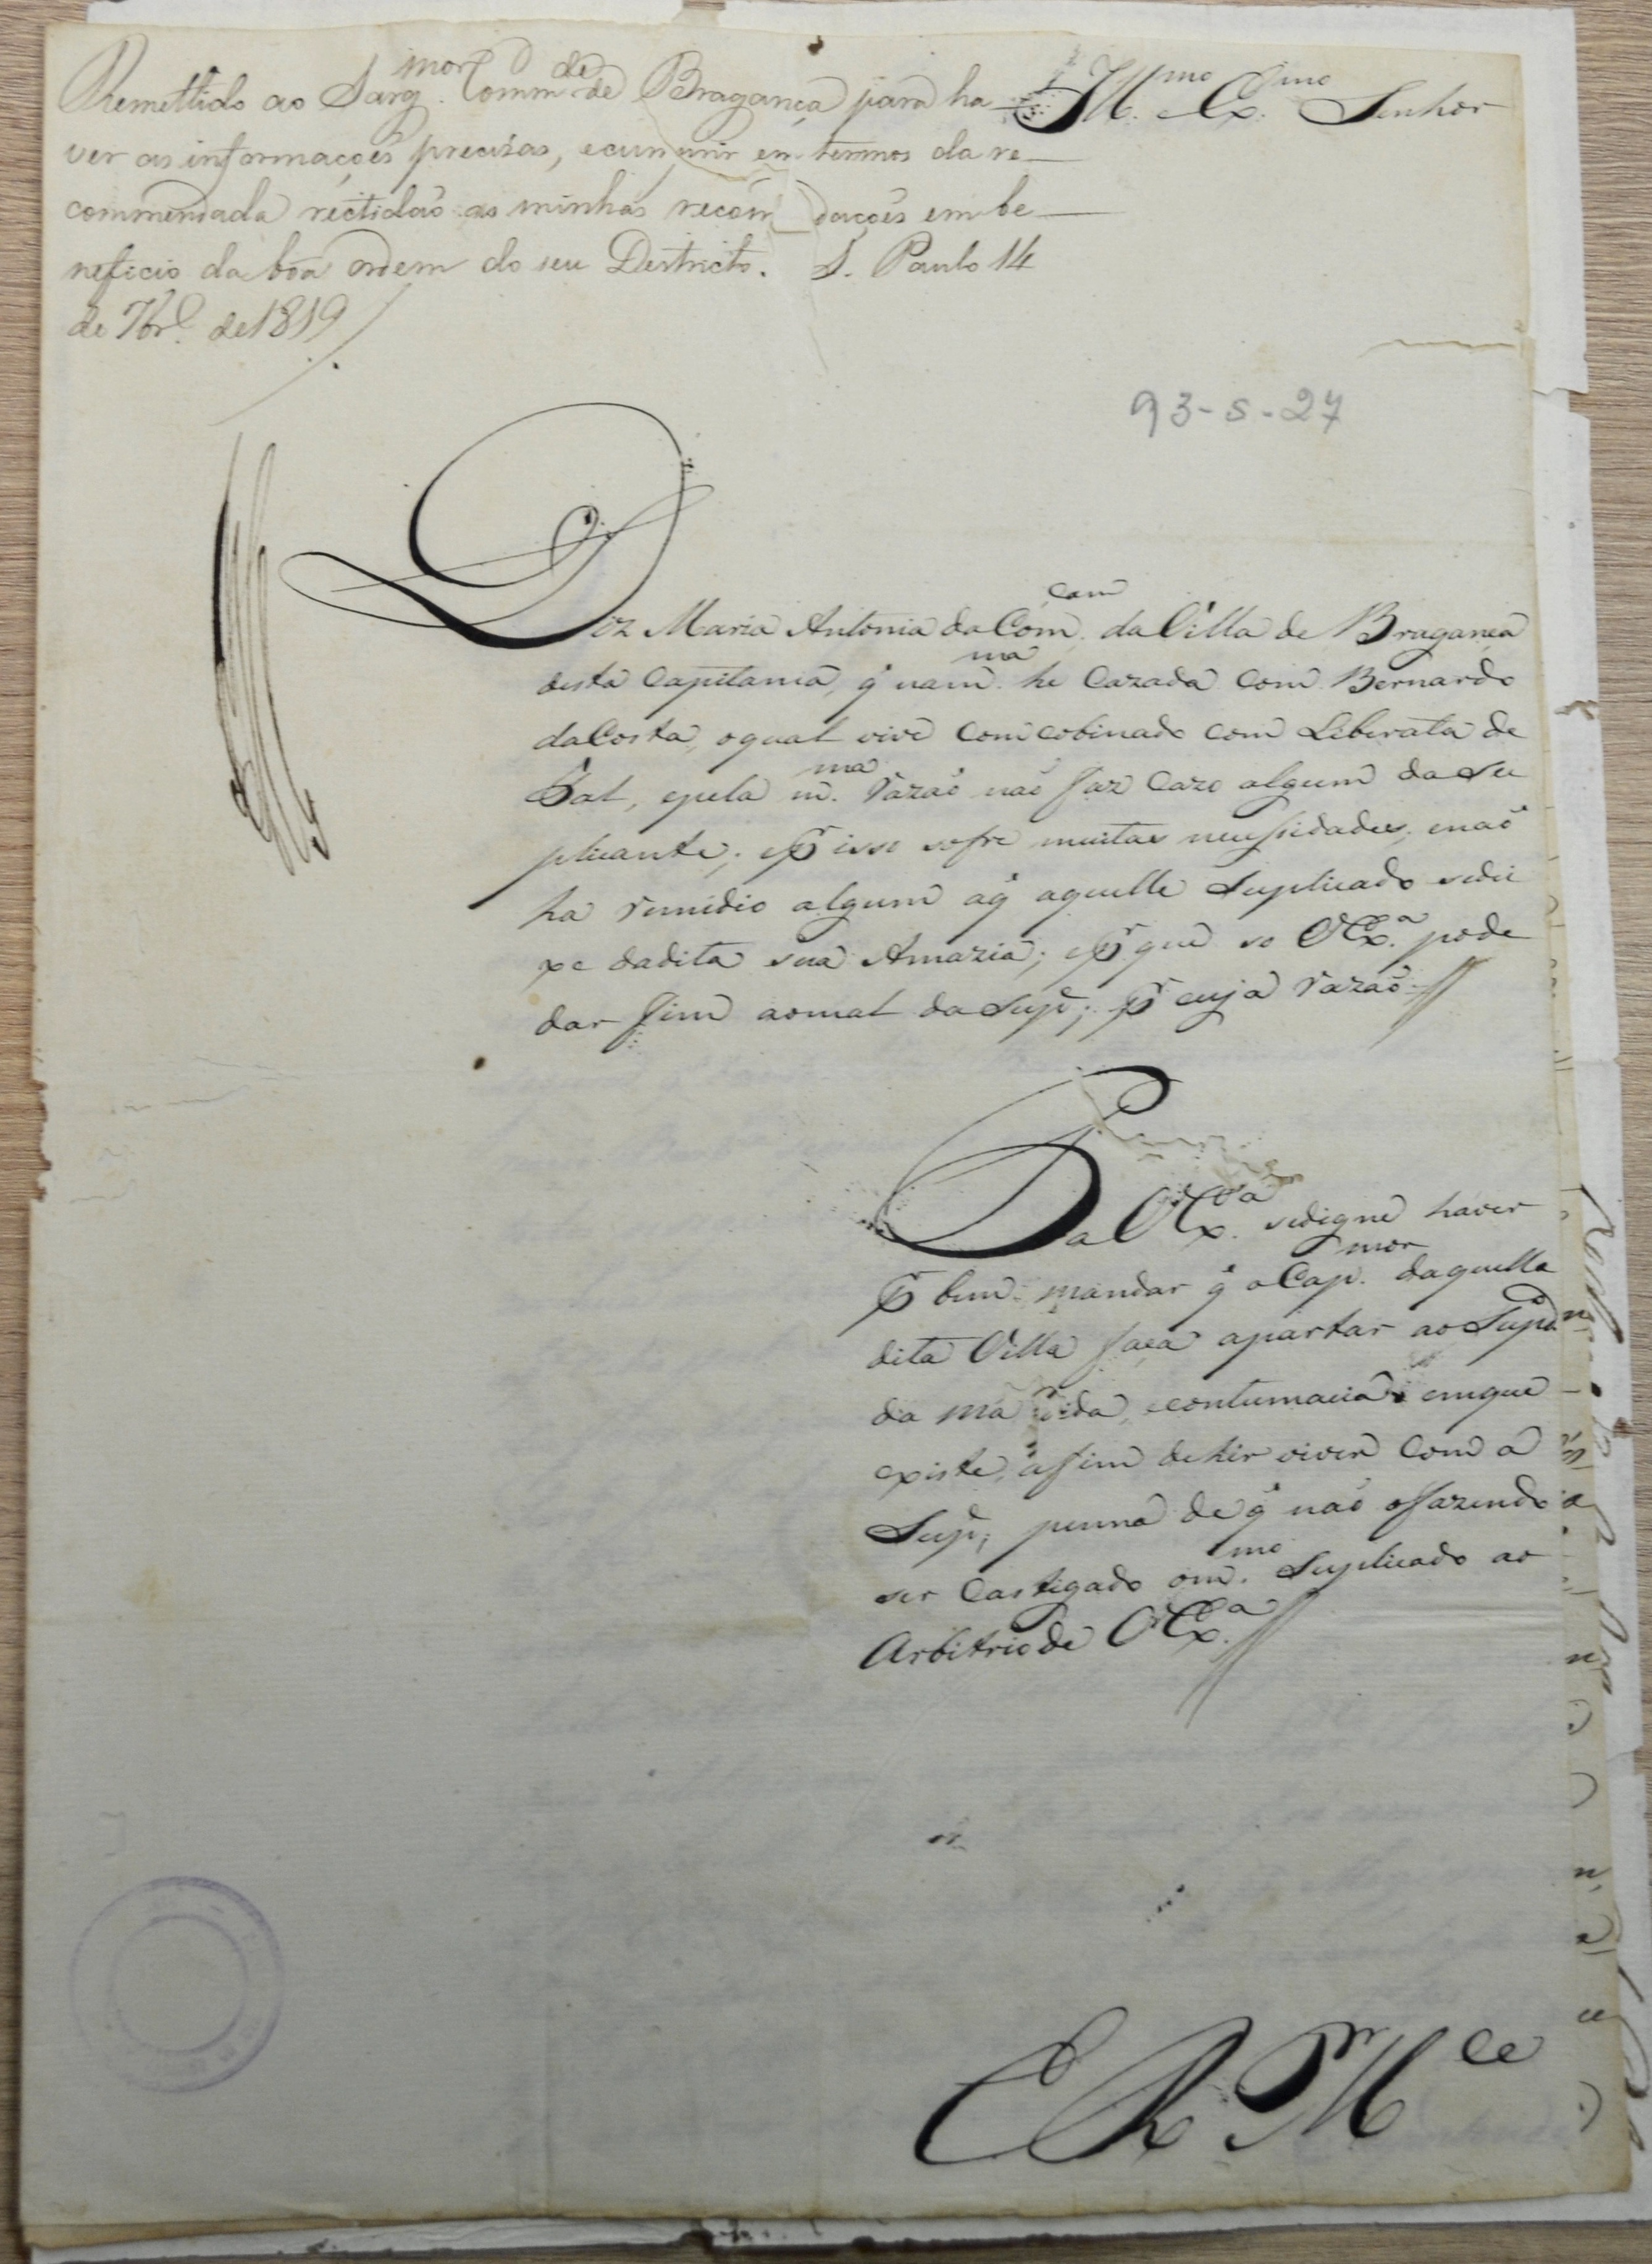 Remettido ao Sarg.mor Comm.de de Bragança para ha
ver as informaçoẽs precizas, e cumprir em termos da re
commendada rectidaõ as minhas recom dacoẽs em be
neficio da boa ordem do seu Destricto. S. Paulo 14
de 7br.o de 1819
Ill.mo Ex.mo Senhor
93-5-27
Diz Maria Antonia da Com.cam da Villa de Bragança
desta Capitania, q̃ na m.ma he Cazada com Bernardo
da Costa, o qual vive comcobinado com Liberata de
Tal, e pela m.ma razaõ naõ faz Cazo algum da Su
plicante; e pr isso sofre muitas necessidades, e naõ
ha remedio algum a q̃ aquelle Suplicado se dei
xe da dita sua Amazia; e pr que so V Ex.a pode
dar fim ao mal da Supe; pr cuja razaõ
Pa V Ex.a se digne haver
pr bem mandar q̃ o Cap.mor daquella
dita Villa faça apartar ao Supdo
da má vida, e contumacia em que
existe, afim de hir viver com a
Supe, penna de q̃ naõ o fazendo
ser Castigado o m.mo Suplicado ao
Arbitrio de V Ex.a
E R Mce